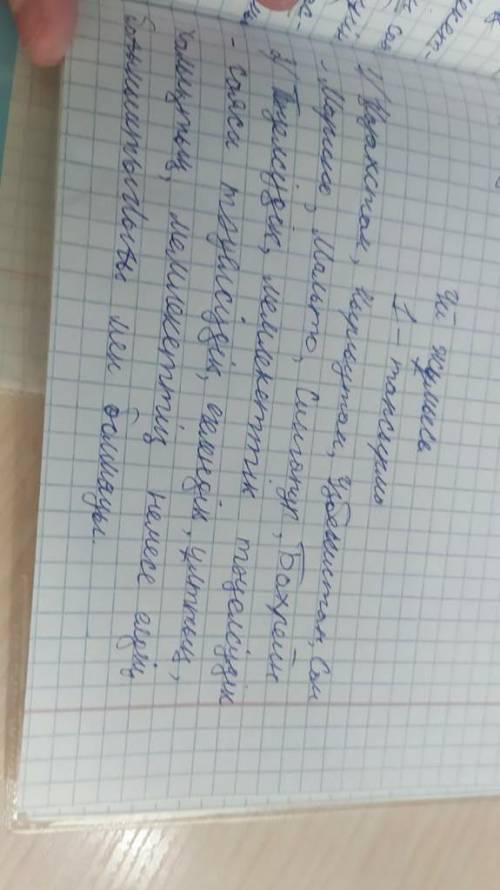 Үй жұмысы
1 - тапсырма
1) Қазахстан, Қырғызстан, Узбекистан, Сан
- Марино, Мальта, Сингапур, Бахрейн
2) Тәуелсіздік, мемлекеттік тәуелсіздік
- саяси тәуелсіздік, егемендік, ұлттың,
халықтың, мемлекеттің немесе елдің
бағыныштылығы мен болмауы.